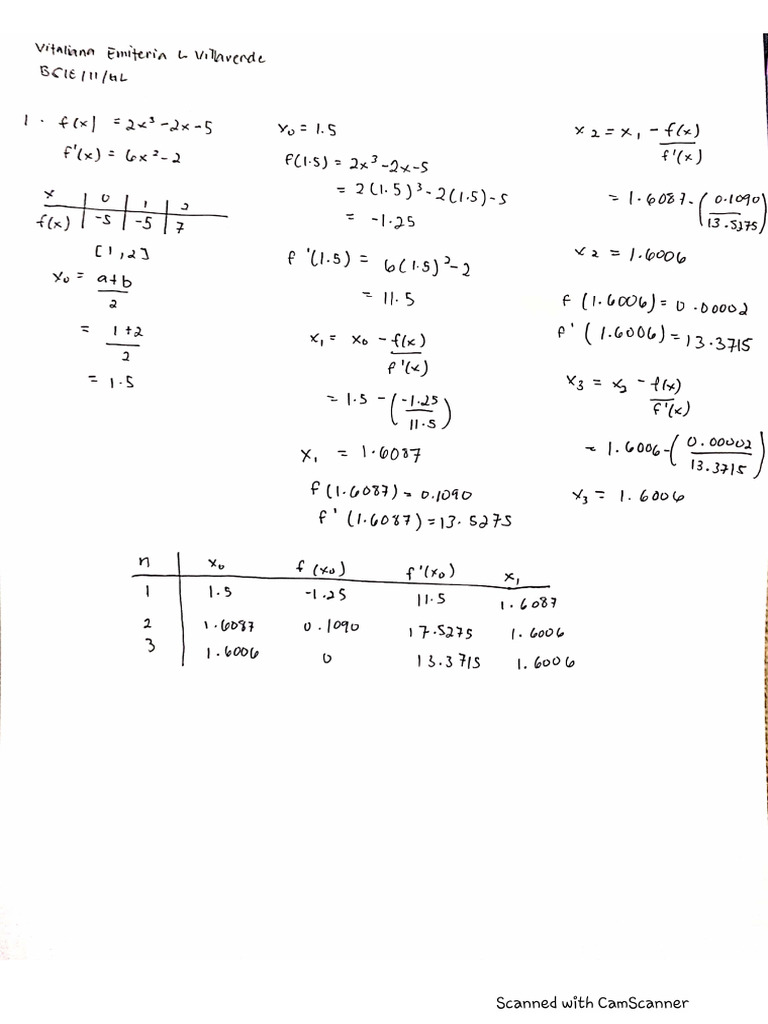 Vitaliana Emiteria L Villaverde
BCIE / 11 / HL
1. f(x) = 2x³ - 2x - 5
f'(x) = 6x² - 2
x | 0 | 1 | 2
f(x) | -5 | -5 | 7
[1, 2]
x₀ = a+b / 2
= 1+2 / 2
= 1.5
x₀ = 1.5
f(1.5) = 2x³ - 2x - 5
= 2(1.5)³ - 2(1.5) - 5
= -1.25
f'(1.5) = 6(1.5)² - 2
= 11.5
x₁ = x₀ - f(x) / f'(x)
= 1.5 - (-1.25 / 11.5)
x₁ = 1.6087
f(1.6087) = 0.1090
f'(1.6087) = 13.5275
x2 = x₁ - f(x) / f'(x)
= 1.6087 - (0.1090 / 13.5275)
x2 = 1.6006
f(1.6006) = 0.00002
f'(1.6006) = 13.3715
x₃ = x₂ - f(x) / f'(x)
= 1.6006 - (0.00002 / 13.3715)
x₃ = 1.6006
n | x₀ f(x₀) f'(x₀) x₁
1 | 1.5 -1.25 11.5 1.6087
2 | 1.6087 0.1090 17.5275 1.6006
3 | 1.6006 0 13.3715 1.6006
Scanned with CamScanner